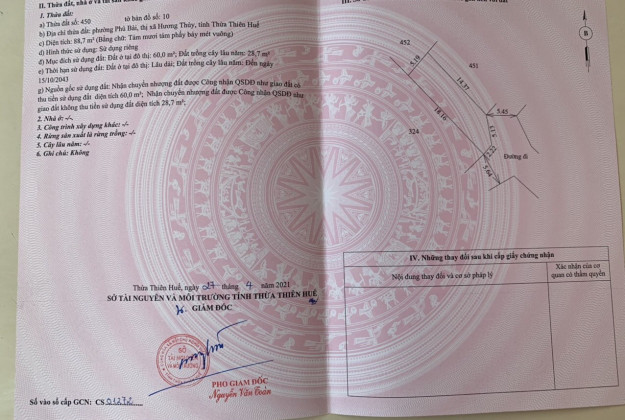 II. Thửa đất, nhà ở và tài sản
1. Thửa đất:
a) Thửa đất số: 450 tờ bản đồ số: 10
b) Địa chỉ thửa đất: phường Phú Bài, thị xã Hương Thủy, tỉnh Thừa Thiên Huế
c) Diện tích: 88,7 m² (Bằng chữ: Tám mươi tám phẩy bảy mét vuông)
d) Hình thức sử dụng: Sử dụng riêng
đ) Mục đích sử dụng đất: Đất ở tại đô thị: 60,0 m²; Đất trồng cây lâu năm: 28,7 m²
e) Thời hạn sử dụng đất: Đất ở tại đô thị: Lâu dài; Đất trồng cây lâu năm: Đến ngày
15/10/2043
g) Nguồn gốc sử dụng đất: Nhận chuyển nhượng đất được Công nhận QSDĐ như giao đất có
thu tiền sử dụng đất diện tích 60,0 m²; Nhận chuyển nhượng đất được Công nhận QSDĐ như
giao đất không thu tiền sử dụng đất diện tích 28,7 m²;
2. Nhà ở: -/-
3. Công trình xây dựng khác: -/-
4. Rừng sản xuất là rừng trồng: -/-
5. Cây lâu năm: -/-
6. Ghi chú: Không
Thừa Thiên Huế, ngày 27 tháng 4 năm 2021
SỞ TÀI NGUYÊN VÀ MÔI TRƯỜNG TỈNH THỪA THIÊN HUẾ
GIÁM ĐỐC
SỞ
TÀI NGUYÊN
VÀ MÔI TRƯỜNG
PHÓ GIÁM ĐỐC
Nguyễn Văn Toản
Số vào sổ cấp GCN: CS
III.
B
452
451
324
5.19
18.37
18.16
5.45
5.04
Đường đi
IV. Những thay đổi sau khi cấp giấy chứng nhận
Nội dung thay đổi và cơ sở pháp lý
Xác nhận của cơ
quan có thẩm quyền